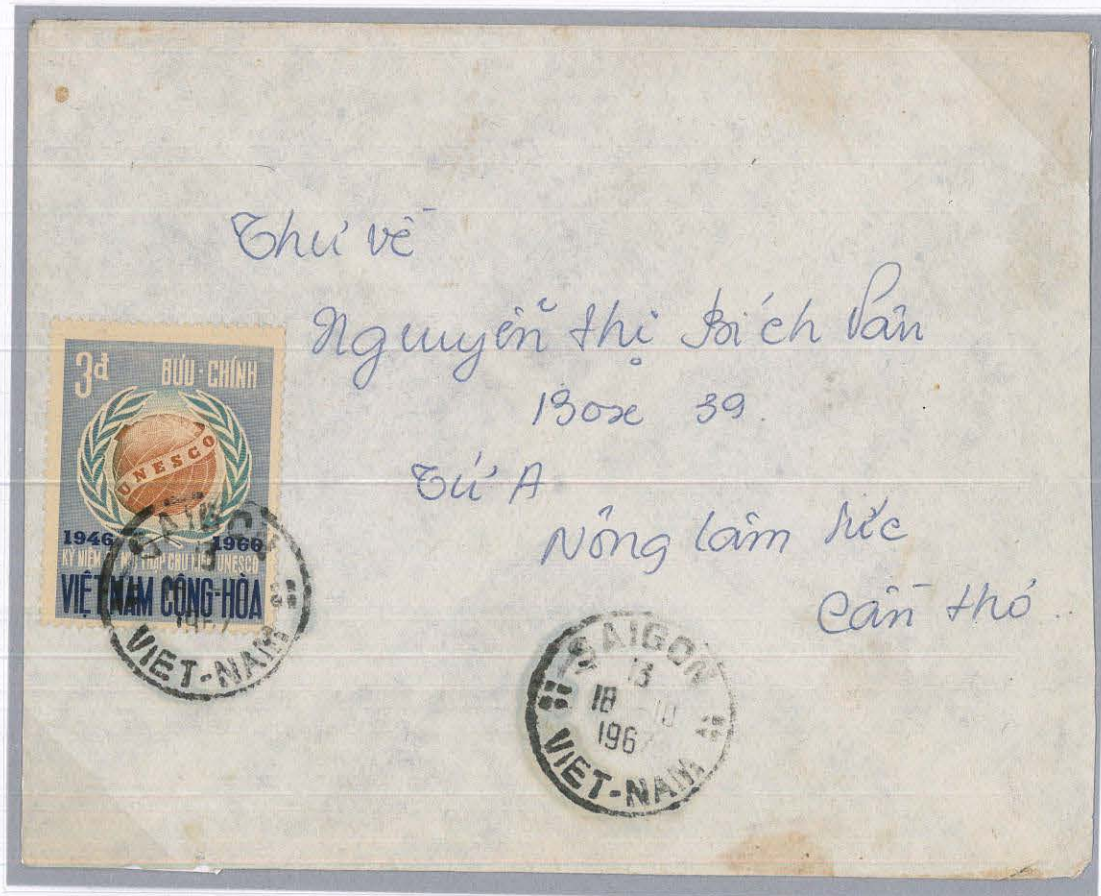 Thư về
Nguyễn thị Bích Vân
Box 39.
Tứ A
Nông lâm Súc
Cần thơ.
3đ BƯU-CHÍNH
UNESCO
1946 1966
KỶ NIỆM THẬP CHU UNESCO
VIỆT NAM CỘNG-HÒA
SAIGON
1967
VIET-NAM
SAIGON
13
18 10
1967
VIET-NAM